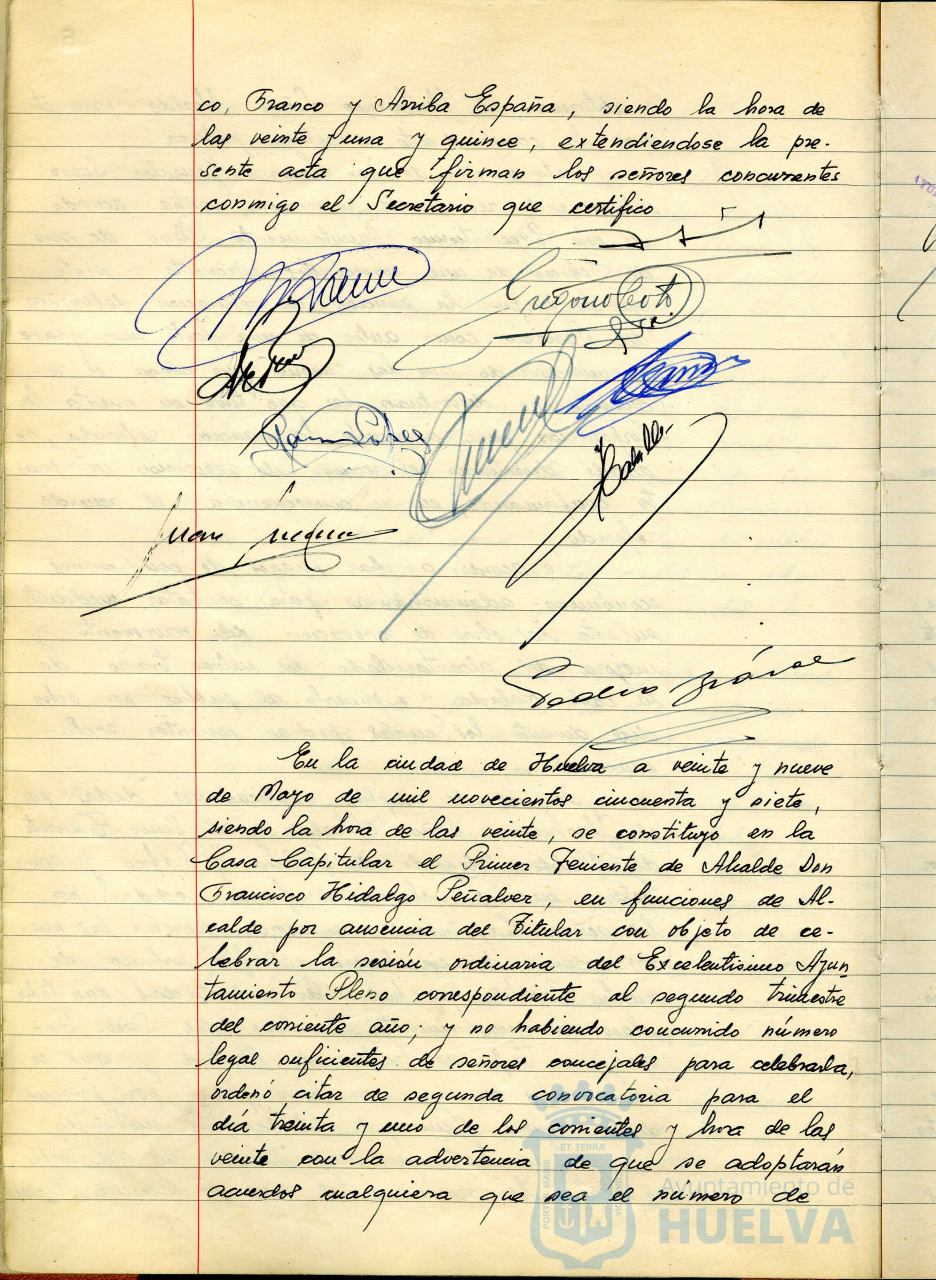 co, Franco y Arriba España, siendo la hora de
las veinte y una y quince, extendiendose la pre-
sente acta que firman los señores concurrentes
conmigo el Secretario que certifico
Gregorio Soto
Ramón López
Juan
Pedro
En la ciudad de Huelva a veinte y nueve
de Mayo de mil novecientos cincuenta y siete,
siendo la hora de las veinte, se constituyo en la
Casa Capitular el Primer Teniente de Alcalde Don
Francisco Hidalgo Peñalver, en funciones de Al-
calde por ausencia del Titular con objeto de ce-
lebrar la sesión ordinaria del Excelentísimo Ayun
tamiento Pleno correspondiente al segundo trimestre
del corriente año; y no habiendo concurrido número
legal suficientes de señores concejales para celebrarla,
ordenó citar de segunda convocatoria para el
día treinta y uno de los corrientes y hora de las
veinte con la advertencia de que se adoptarán
acuerdos cualquiera que sea el número de
Ayuntamiento de
HUELVA